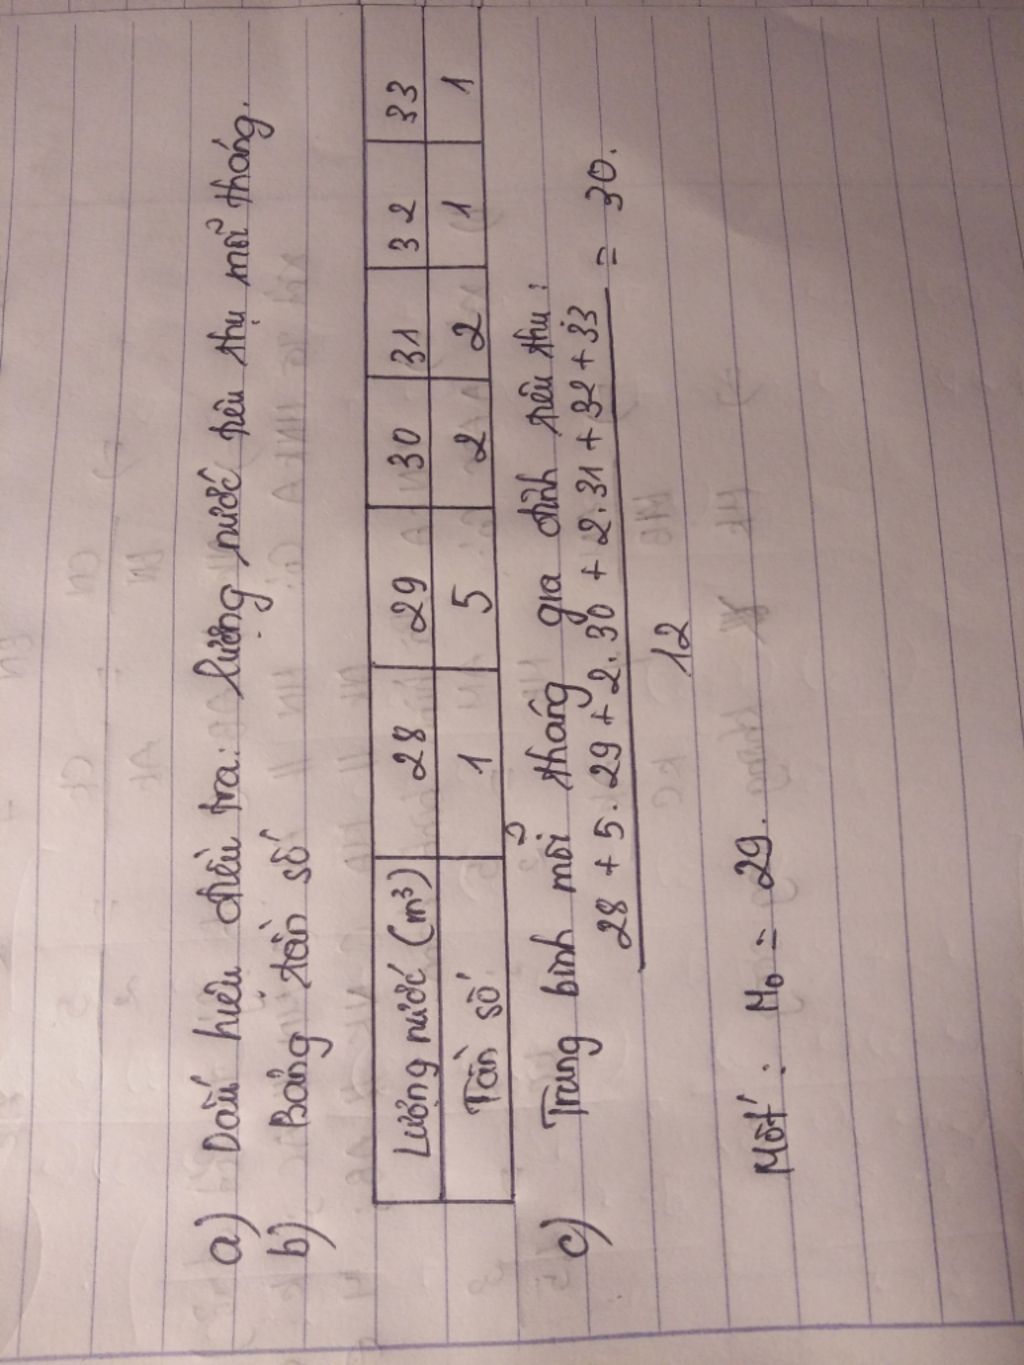 a) Dấu hiệu điều tra: lượng nước tiêu thụ mỗi tháng.
b) Bảng tần số
Lượng nước (m³) 28 29 30 31 32 33
Tần số 1 5 2 2 1 1
c) Trung bình mỗi tháng gia đình tiêu thụ:
28 + 5.29 + 2.30 + 2.31 + 32 + 33 = 30.
12
Mốt: M₀ = 29.